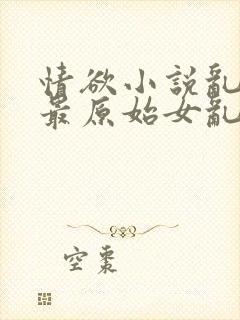 情欲小說亂
最原始女亂
空棗